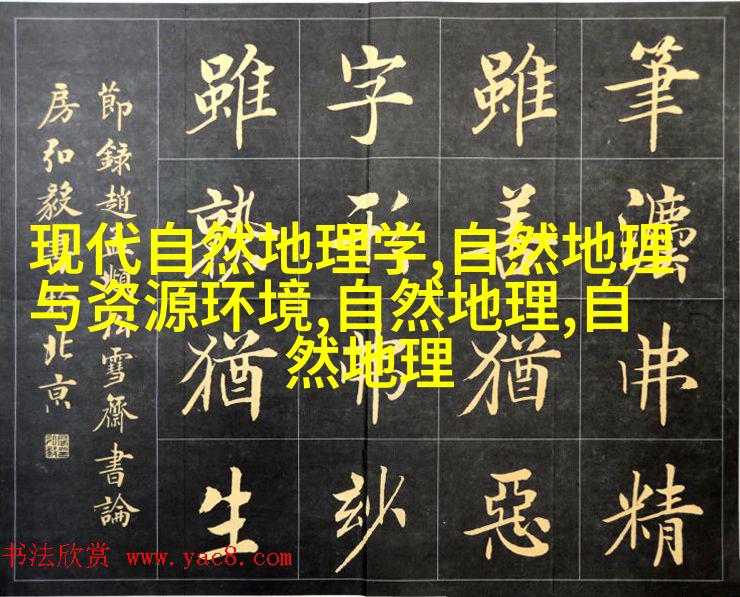 筆灋弗精
雖善猶惡
字形妙
雖熟猶生
節錄趙孟頫松雪齋書論
房弘毅書於北京
现代自然地理学,自然地理
与资源环境,自然地理,自
然地理
书法欣赏 www.yac8.com